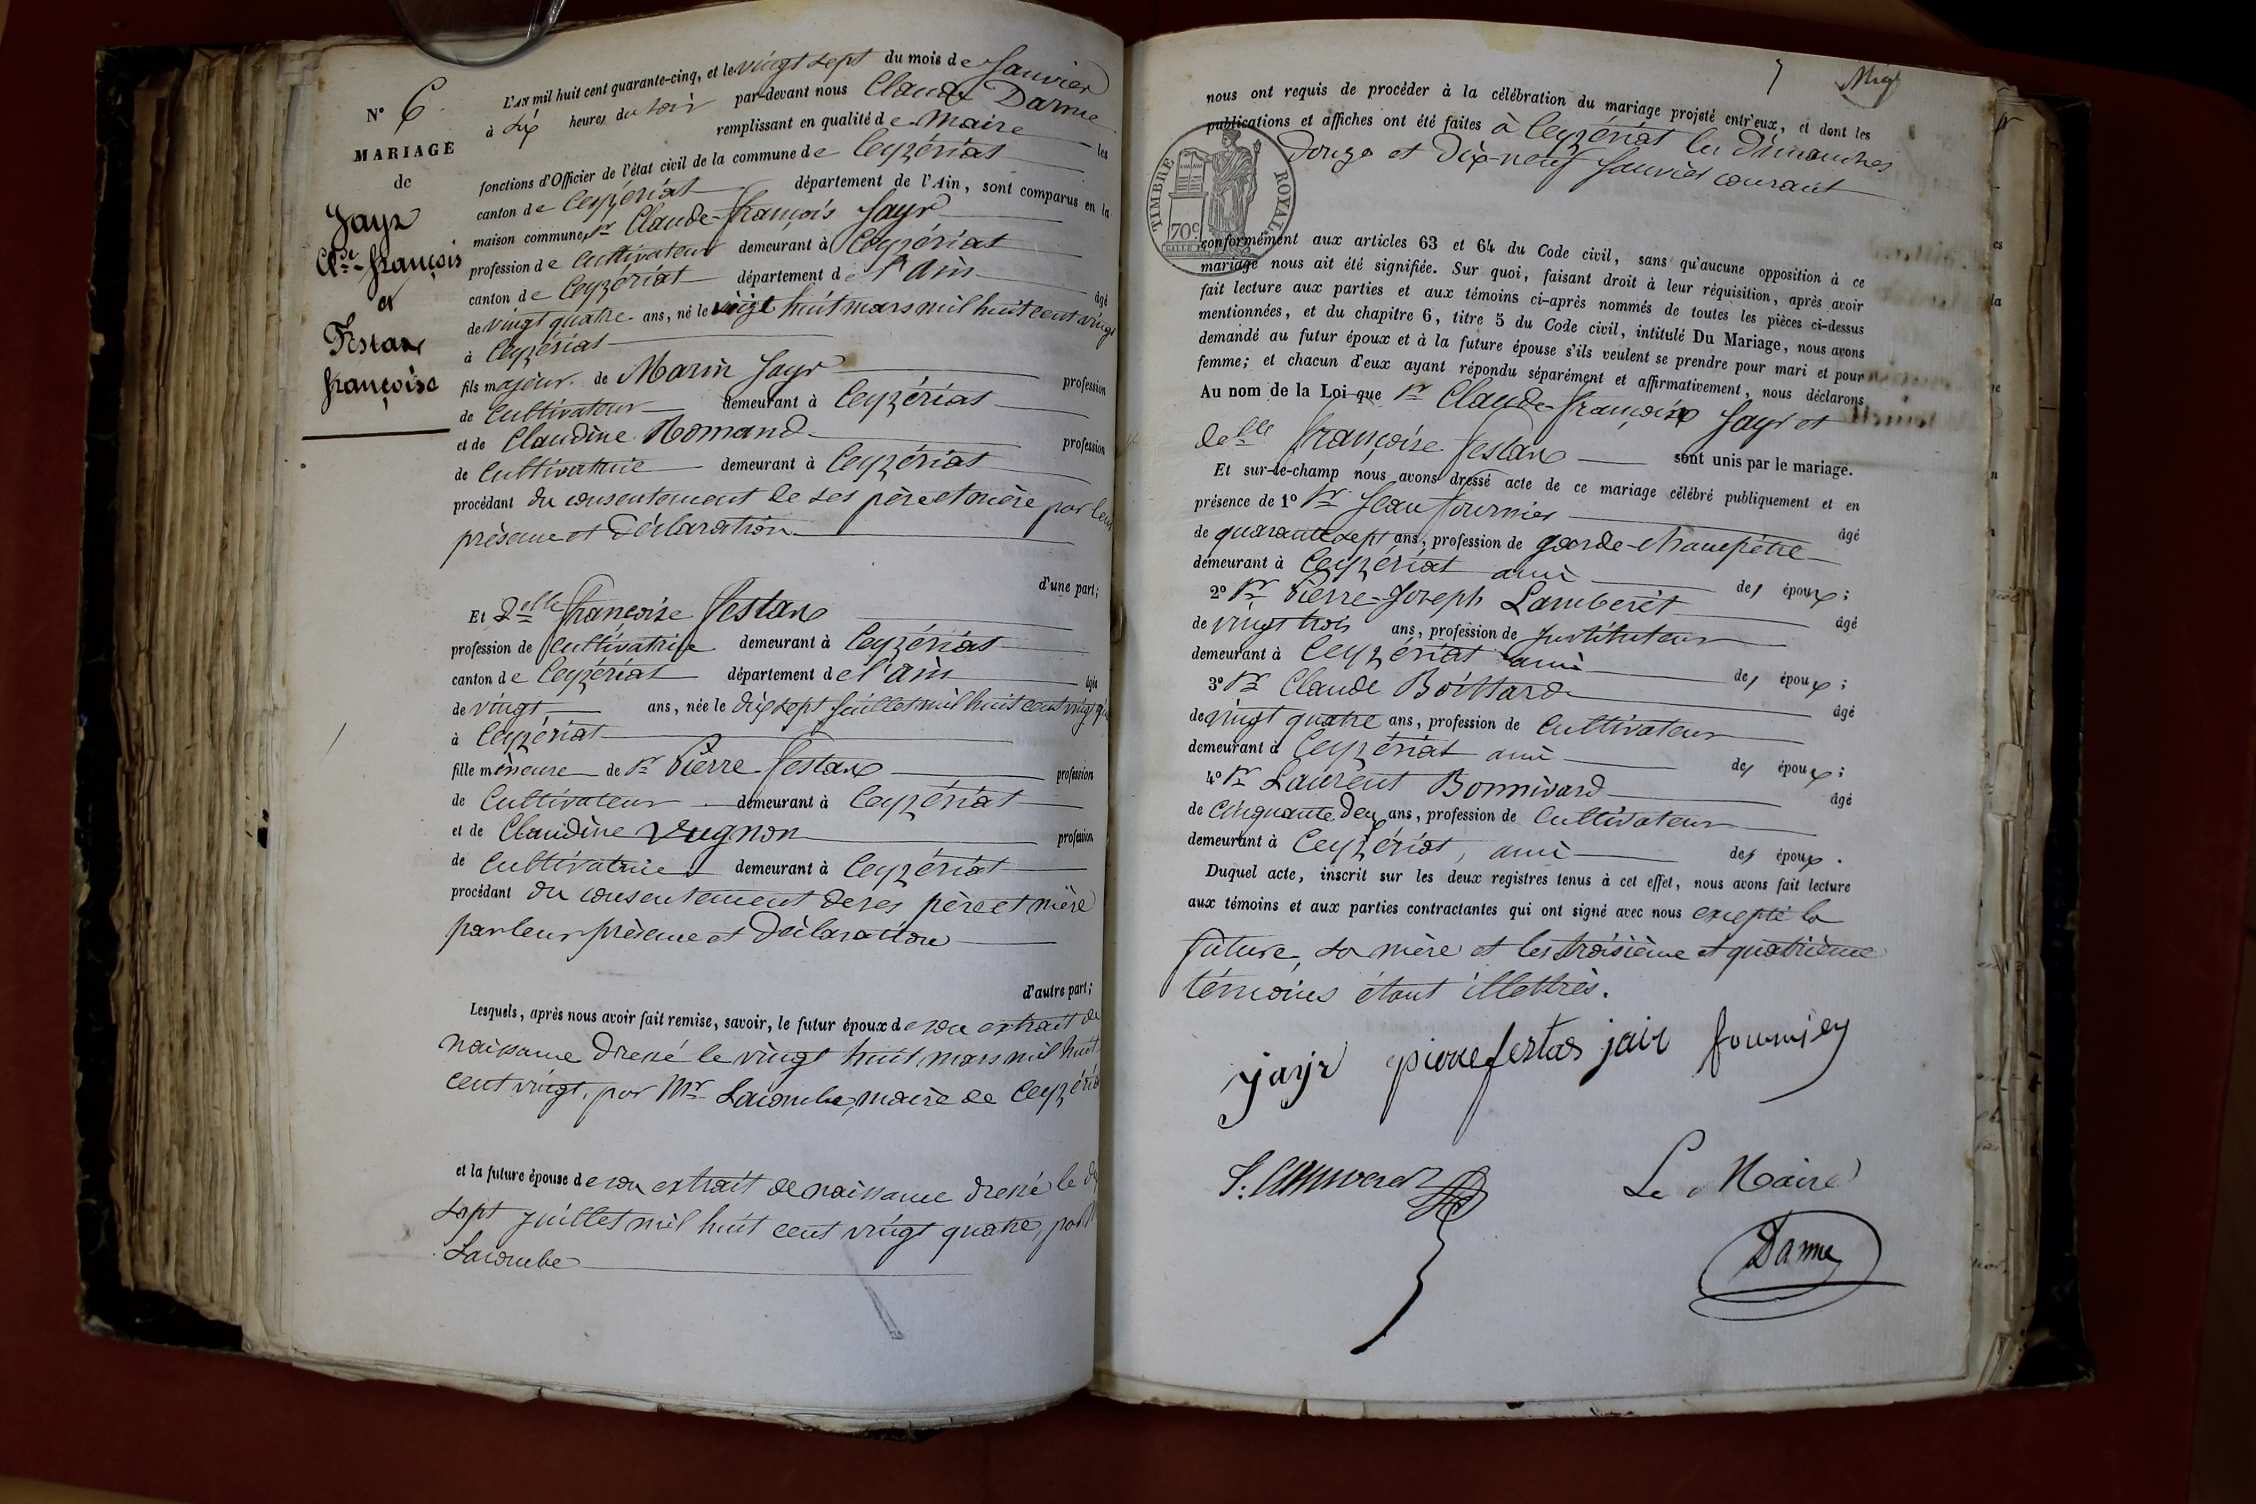 N° 6
MARIAGE
de
Jayr
Cde-françois
et
Festax
françoise
L'AN mil huit cent quarante-cinq, et le vingt sept du mois de Janvier
à six heures du soir par-devant nous Claude Damne
remplissant en qualité de Maire les
fonctions d'Officier de l'état civil de la commune de Ceyzériat
canton de Ceyzériat département de l'Ain, sont comparus en la
maison commune, Sr Claude-françois Jayr
profession de Cultivateur demeurant à Ceyzériat
canton de Ceyzériat département de l'Ain âgé
de vingt quatre ans, né le vingt huit mars mil huit cent vingt
à Ceyzériat
fils majeur de Marin Jayr profession
de Cultivateur demeurant à Ceyzériat
et de Claudine Romand profession
de Cultivatrice demeurant à Ceyzériat
procédant du consentement de ses père et mère par leur
présence et Déclaration
d'une part;
Et Delle françoise Festax
profession de Cultivatrice demeurant à Ceyzériat
canton de Ceyzériat département de l'Ain âgée
de vingt ans, née le dix sept Juillet mil huit cent vingt
à Ceyzériat
fille mineure de Sr Pierre Festax profession
de Cultivateur demeurant à Ceyzériat
et de Claudine Vugnon profession
de Cultivatrice demeurant à Ceyzériat
procédant du consentement de ses père et mère
par leur présence et Déclaration
d'autre part;
Lesquels, après nous avoir fait remise, savoir, le futur époux de son extrait de
naissance Dressé le vingt huit mars mil huit
cent vingt, par Mr Lacombe, maire de Ceyzériat
et la future épouse de son extrait de naissance Dressé le dix
sept Juillet mil huit cent vingt quatre, par M
Lacombe
7
nous ont requis de procéder à la célébration du mariage projeté entr'eux, et dont les
publications et affiches ont été faites à Ceyzériat les Dimanches
Douze et Dix-neuf Janvier courant
TIMBRE ROYAL
70c
conformément aux articles 63 et 64 du Code civil, sans qu'aucune opposition à ce
mariage nous ait été signifiée. Sur quoi, faisant droit à leur réquisition, après avoir
fait lecture aux parties et aux témoins ci-après nommés de toutes les pièces ci-dessus
mentionnées, et du chapitre 6, titre 5 du Code civil, intitulé Du Mariage, nous avons
demandé au futur époux et à la future épouse s'ils veulent se prendre pour mari et pour
femme; et chacun d'eux ayant répondu séparément et affirmativement, nous déclarons
Au nom de la Loi que Sr Claude-françois Jayr et
Delle françoise Festax sont unis par le mariage.
Et sur-le-champ nous avons dressé acte de ce mariage célébré publiquement et en
présence de 1° Sr Jean fournier âgé
de quarante sept ans, profession de garde-champêtre
demeurant à Ceyzériat ami des époux;
2° Sr Pierre-Joseph Lamberet âgé
de vingt trois ans, profession de Instituteur
demeurant à Ceyzériat ami des époux;
3° Sr Claude Boittard âgé
de vingt quatre ans, profession de Cultivateur
demeurant à Ceyzériat ami des époux;
4° Sr Laurent Bonnivard âgé
de Cinquante Deux ans, profession de Cultivateur
demeurant à Ceyzériat, ami des époux.
Duquel acte, inscrit sur les deux registres tenus à cet effet, nous avons fait lecture
aux témoins et aux parties contractantes qui ont signé avec nous excepté la
future, sa mère et les troisième et quatrième
témoins étant illettrés.
jayr pierre festas jair fournier
Le Maire
Damne